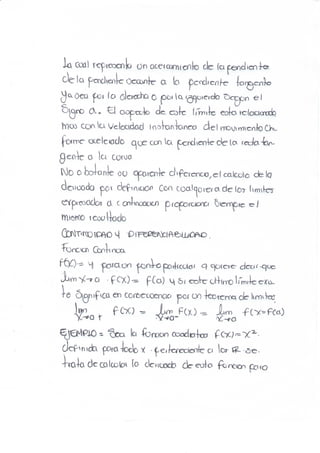 la cual representa un acercamiento de la pendiente
de la pendiente secante a la pendiente tangente
ya sea por la derecha o por la izquierda segun el
signo a. El aspecto de este límite esta relacionado
mas con la velocidad instantanea del movimiento
forme acelerado que con la pendiente de la recta tan-
gente a la curva
No obstante su aparente diferencia, el calculo de la
derivada por definicion con cualquiera de los limites
expresados a continuacion proporciona siempre el
mismo resultado
CONTINUIDAD Y DIFERENCIABILIDAD.
Funcion Continua.
f(x)= y para un punto particular a quiere decir que
Lim x→a f(x)= f(a) y si este ultimo límite exis-
te significa en consecuencia por un teorema de limites
lim x→a+ f(x) = Lim x→a- f(x) = Lim x→a f(x)=f(a)
EJEMPLO = Sea la funcion cuadratica f(x)=x².
definida para todo x perteneciente a los R se
trata de calcular la derivada de esta funcion para